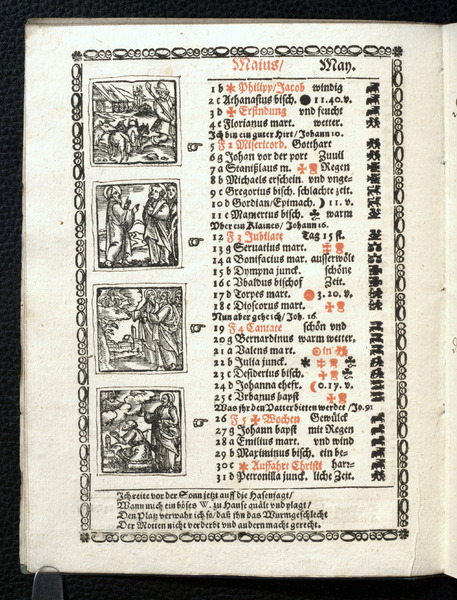 Maius/ May.
1 b Philipp/Jacob windig
2 c Athanasius bisch. 11.40.v.
3 d Erfindung vnd feucht
4 e Florianus mart. wetter.
Ich bin ein guter Hirt/ Johann 10.
5 F 2 Misericord. Gotthart
6 g Johan vor der port Zuuil
7 a Stanißlaus m. Regen
8 b Michaels erschein. vnd vnge-
9 c Gregorius bisch. schlachte zeit.
10 d Gordian/Epimach. 11 v.
11 e Mamertus bisch. warm
Vber ein Klaines/ Johann 16.
12 F 3 Jubilate Tag 15 st.
13 g Seruatius mart.
14 a Bonifacius mar. ausserwölt
15 b Dympna junck. schöne
16 c Vbaldus bischof Zeit.
17 d Torpes mart. 3.20.v.
18 e Dioscorus mart.
Nun aber geh ich/ Joh. 16.
19 F 4 Cantate schön vnd
20 g Bernardinus warm wetter.
21 a Valens mart. in
22 b Julia junck.
23 c Desiderius bisch.
24 d Johanna chefr. 0.17.v.
25 e Vrbanus bapst
Was ihr den Vatter bitten werdet/ Jo.
26 F 5 Wochen Gewülck
27 g Johann bapst mit Regen
28 a Emilius mart. vnd wind
29 b Maximinus bisch. ein be-
30 c Auffahrt Christi harr-
31 d Petronilla junck. liche Zeit.
Ich reite vor der Sonn jetzt auff die Hasenjagt/
Wann mich ein böses W. zu Hause quält vnd plagt/
Den Platz verwahr ich so/ daß ihn das Wurmgeschlecht
Der Motten nicht verderbt vnd andern macht gerecht.